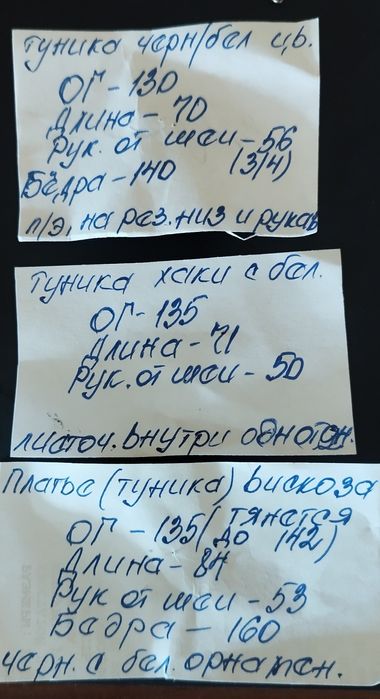 туника черн/бел цв.
ОГ - 130
Длина - 70
Рук. от шеи - 56
(3/4)
Бедра - 140
п/э, на раз. низ и рукав
туника хаки с бел.
ОГ - 135
Длина - 71
Рук. от шеи - 50
листоч. внутри однотон.
Платье (туника) вискоза
ОГ - 135 (тянется
до 142)
Длина - 84
Рук от шеи - 53
Бедра - 160
черн. с бел. орнамен.